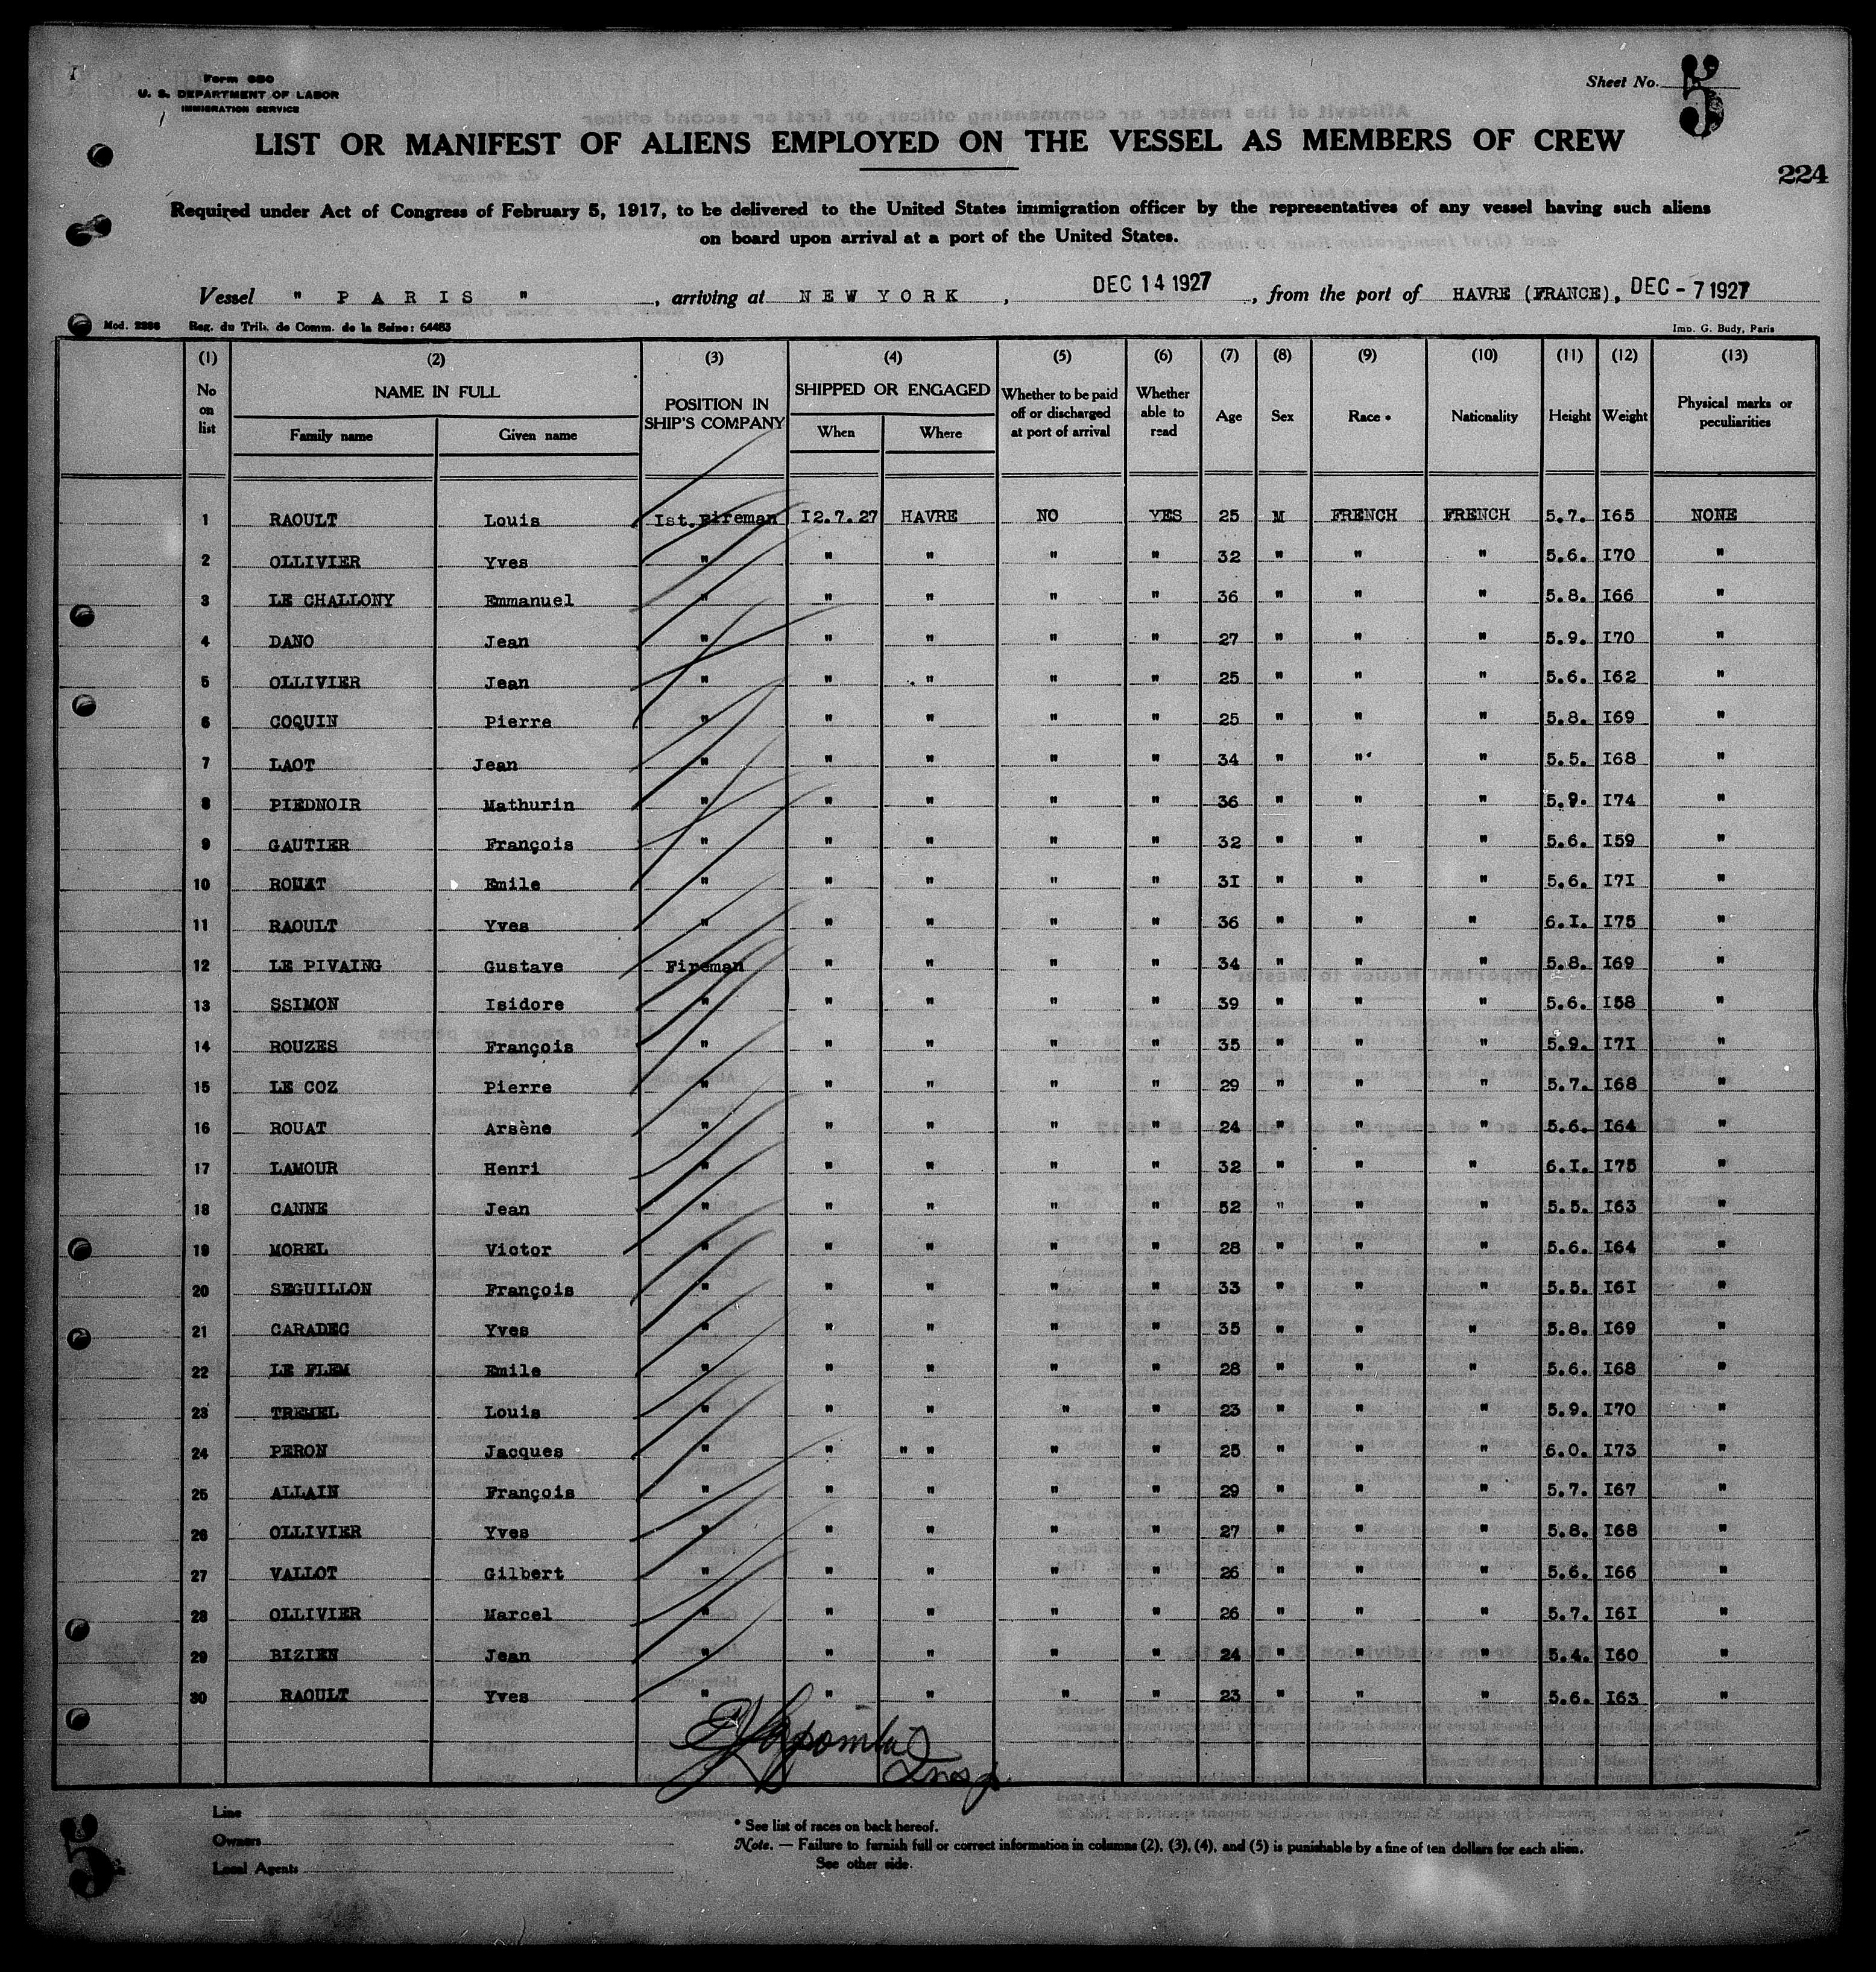 Form 680
U. S. DEPARTMENT OF LABOR
IMMIGRATION SERVICE
Sheet No. 5
LIST OR MANIFEST OF ALIENS EMPLOYED ON THE VESSEL AS MEMBERS OF CREW
224
Required under Act of Congress of February 5, 1917, to be delivered to the United States immigration officer by the representatives of any vessel having such aliens
on board upon arrival at a port of the United States.
Vessel " P A R I S " , arriving at N E W Y O R K , DEC 14 1927 , from the port of HAVRE (FRANCE), DEC - 7 1927
Mod. 2286 Reg. du Trib. de Comm. de la Seine: 64483 Imp. G. Budy, Paris
(1) (2) (3) (4) (5) (6) (7) (8) (9) (10) (11) (12) (13)
No on list NAME IN FULL POSITION IN SHIP'S COMPANY SHIPPED OR ENGAGED Whether to be paid off or discharged at port of arrival Whether able to read Age Sex Race * Nationality Height Weight Physical marks or peculiarities
Family name Given name When Where
1 RAOULT Louis Ist.Fireman I2.7.27 HAVRE NO YES 25 M FRENCH FRENCH 5.7. I65 NONE
2 OLLIVIER Yves " " " " " 32 " " " 5.6. I70 "
3 LE CHALLONY Emmanuel " " " " " 36 " " " 5.8. I66 "
4 DANO Jean " " " " " 27 " " " 5.9. I70 "
5 OLLIVIER Jean " " " " " 25 " " " 5.6. I62 "
6 COQUIN Pierre " " " " " 25 " " " 5.8. I69 "
7 LAOT Jean " " " " " 34 " " " 5.5. I68 "
8 PIEDNOIR Mathurin " " " " " 36 " " " 5.9. I74 "
9 GAUTIER François " " " " " 32 " " " 5.6. I59 "
10 ROUAT Emile " " " " " 3I " " " 5.6. I7I "
11 RAOULT Yves " " " " " 36 " " " 6.I. I75 "
12 LE PIVAING Gustave Fireman " " " " 34 " " " 5.8. I69 "
13 SSIMON Isidore " " " " " 39 " " " 5.6. I58 "
14 ROUZES François " " " " " 35 " " " 5.9. I7I "
15 LE COZ Pierre " " " " " 29 " " " 5.7. I68 "
16 ROUAT Arsène " " " " " 24 " " " 5.6. I64 "
17 LAMOUR Henri " " " " " 32 " " " 6.I. I75 "
18 CANNE Jean " " " " " 52 " " " 5.5. I63 "
19 MOREL Victor " " " " " 28 " " " 5.6. I64 "
20 SEGUILLON François " " " " " 33 " " " 5.5. I6I "
21 CARADEC Yves " " " " " 35 " " " 5.8. I69 "
22 LE FLEM Emile " " " " " 28 " " " 5.6. I68 "
23 TREMEL Louis " " " " " 23 " " " 5.9. I70 "
24 PERON Jacques " " " " " " 25 " " " 6.0. I73 "
25 ALLAIN François " " " " " 29 " " " 5.7. I67 "
26 OLLIVIER Yves " " " " " 27 " " " 5.8. I68 "
27 VALLOT Gilbert " " " " " 26 " " " 5.6. I66 "
28 OLLIVIER Marcel " " " " " 26 " " " 5.7. I6I "
29 BIZIEN Jean " " " " " 24 " " " 5.4. I60 "
30 RAOULT Yves " " " " " 23 " " " 5.6. I63 "
Insp
5
Line
Owners
Local Agents
* See list of races on back hereof.
Note. — Failure to furnish full or correct information in columns (2), (3), (4), and (5) is punishable by a fine of ten dollars for each alien.
See other side.